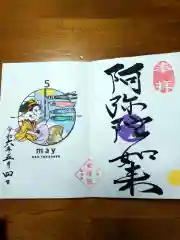 奉拝
阿弥陀如来
5
may
令和六年五月四日